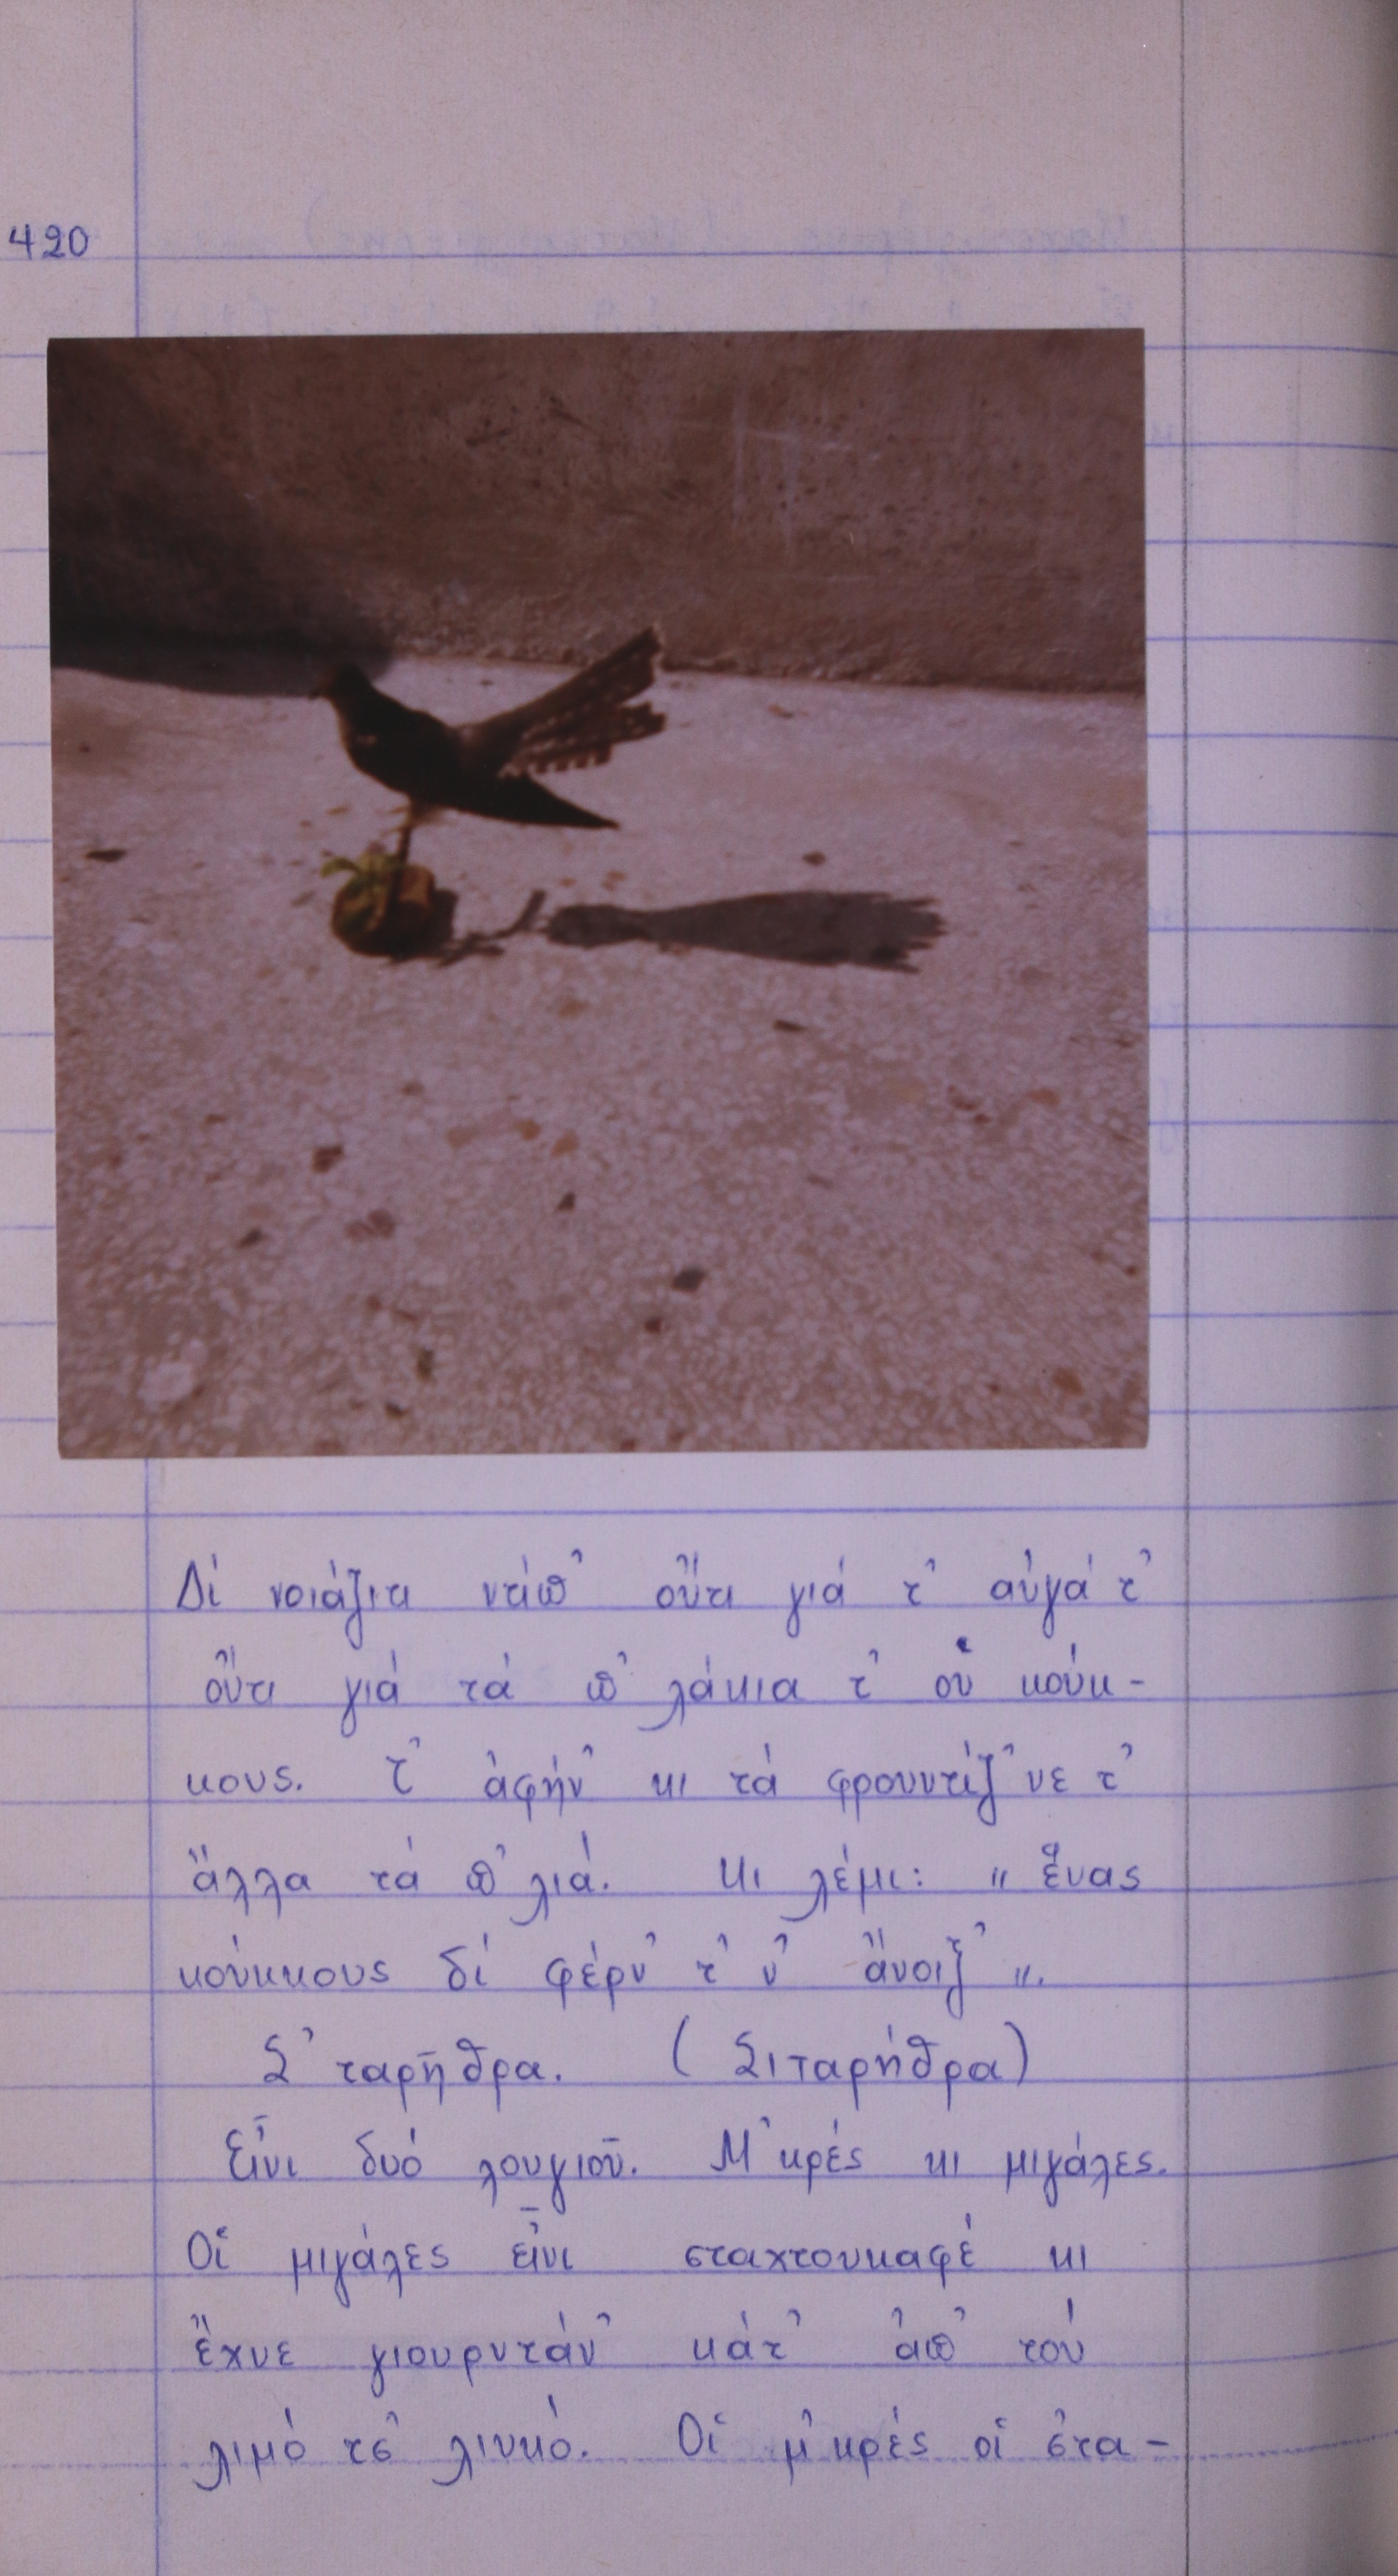 420
Δί νοιάζιτι ντίπ' οὔτι γιά τ' αὐγά τ'
οὔτι γιά τά π'λάκια τ' οὑ κούκ-
κους. Τ' ἀφήν' κι τά φρουντίζ'νε τ'
ἄλλα τά π'λιά. Κι λέμι: " ἕνας
κούκκους δί φέρν' τ' ν' ἄνοιξ' ".
Σ'ταρῆθρα. (Σιταρήθρα)
Εἶνι δυό λουγιοῦ. Μ'κρές κι μιγάλες.
Οἱ μιγάλες εἶνι σταχτουκαφέ κι
ἔχνε γιουρντάν' κάτ' ἀπ' τού
λιμό τς' λινκό. Οἱ μ'κρές οἱ στα-